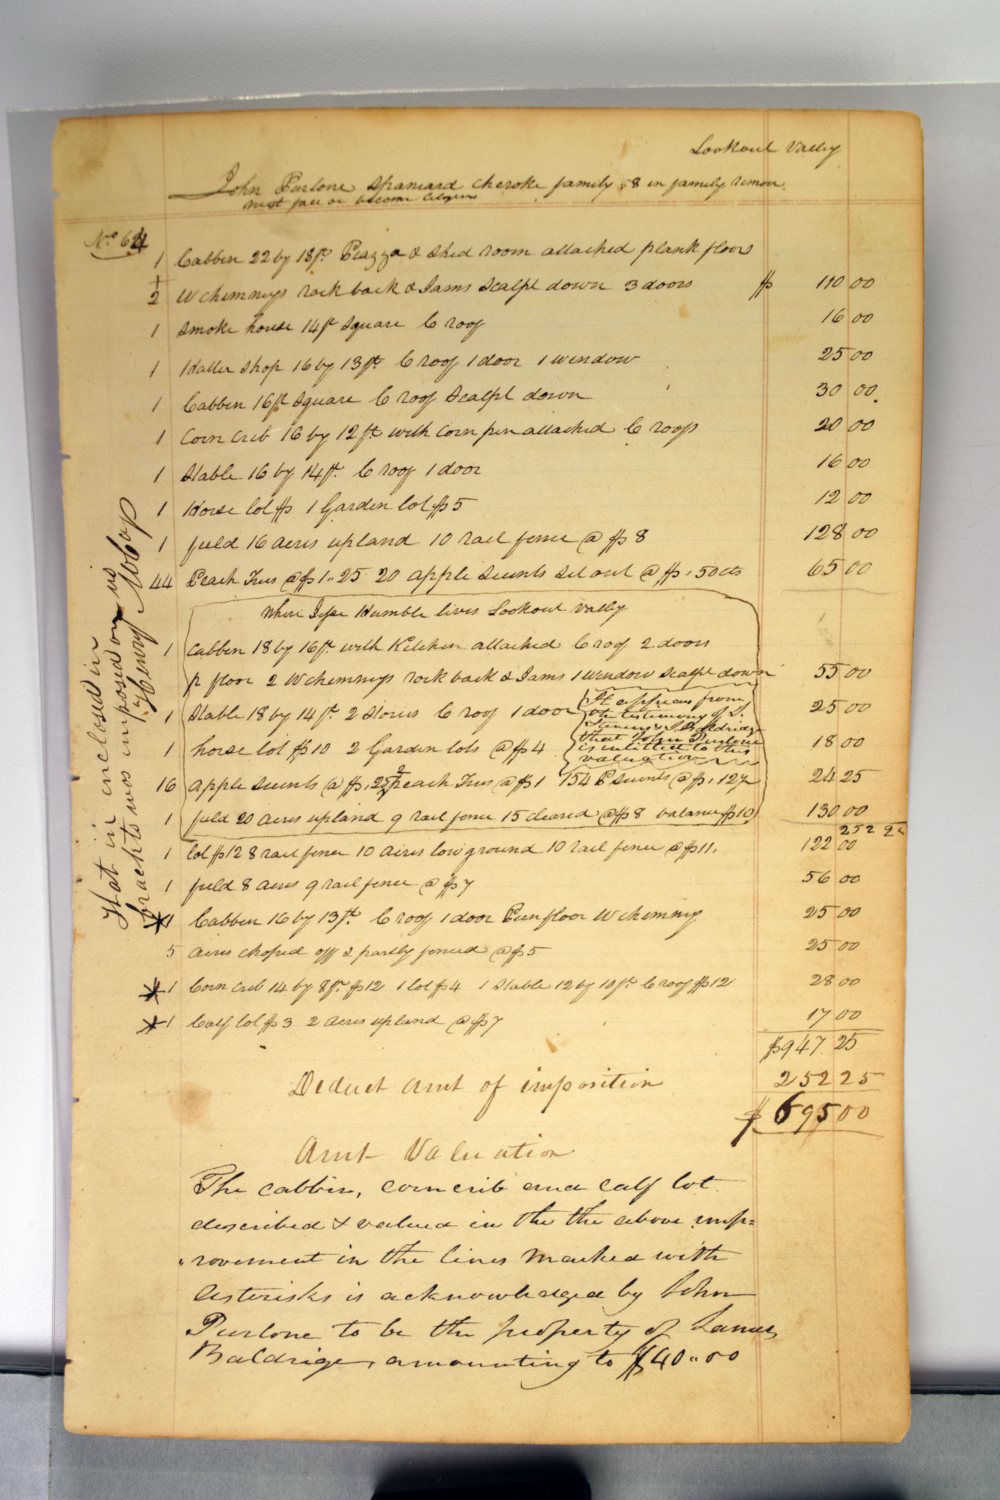 Lookout Valley
John Purlone Spaniard Cherokee family 8 in family remove
next fall or become citizens
No 64
1 Cabben 22 by 18 ft. Piazza & Shed room attached plank floors
2 W chimneys rock back & Jams Scalpt down 3 doors $ 110 00
1 Smoke house 14 ft Square C roof 16 00
1 Hatter Shop 16 by 13 ft. C roof 1 door 1 window 25 00
1 Cabben 16 ft Square C roof Scalpt down 30 00
1 Corn Crib 16 by 12 ft with corn pen attached C roofs 20 00
1 Stable 16 by 14 ft. C roof 1 door 16 00
1 Horse lot 1 Garden lot $5 12 00
1 field 16 acres upland 10 rail fence @ $8 128 00
44 Peach Trees @ $1.25 20 apple Scunts Set out @ $.50cts 65 00
Where Humble lives Lookout Valley
1 Cabben 18 by 16 ft with Kitchen attached C roof 2 doors
p floor 2 W chimneys rock back & Jams 1 window Scalpt down 55 00
1 Stable 18 by 14 ft. 2 Stories C roof 1 door 25 00
It appears from
the testimony of
Baldridge
that John Purlone
is intitled to this
valuation
1 horse lot $10 2 Garden lots @ $4 18 00
16 apple Scunts @ $.25 2 peach Trees @ $1 154 P Scunts @ $.12½ 24 25
1 field 20 acres upland 9 rail fence 15 cleared @ $8 balance $10 130 00
252 25
1 lot $12 8 rail fence 10 acres low ground 10 rail fence @ $11. 122 00
1 field 8 acres 9 rail fence @ $7 56 00
* 1 Cabben 16 by 13 ft. C roof 1 door Pun floor W chimney 25 00
5 acres choped off & partly fenced @ $5 25 00
* 1 Corn Crib 14 by 8 ft. $12 1 lot $4 1 Stable 12 by 10 ft C roof $12 28 00
* 1 Calf lot $3 2 acres upland @ $7 17 00
$947 25
Deduct amt of imposition 252 25
$ 695 00
Amt Valuation
The cabbin, corn crib and calf lot
described & valued in the the above imp=
rovement in the lines marked with
Asterisks is acknowledged by John
Purlone to be the property of James
Baldrige, amounting to $40.00
That in inclosed in
brackets was imposed on us
by Henry